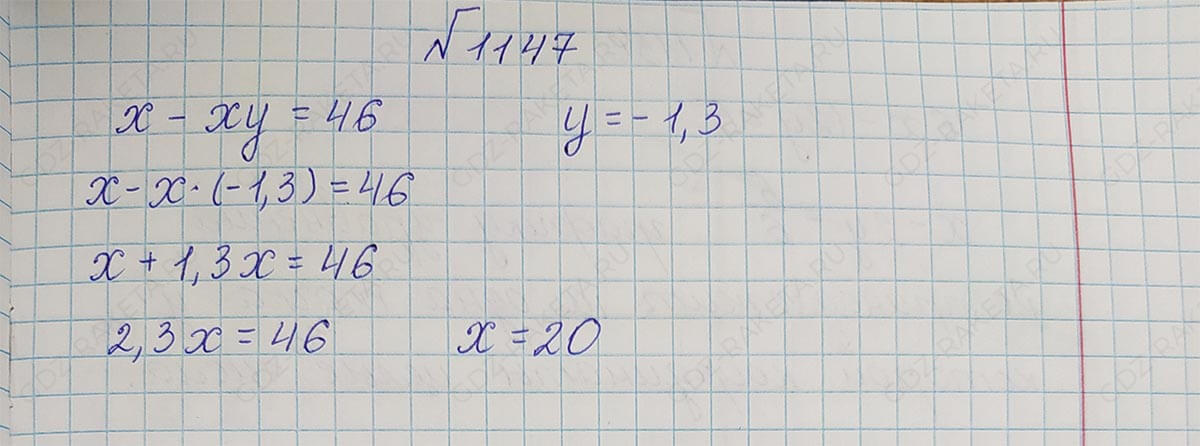 №1147
x - xy = 46 y = -1,3
x - x·(-1,3) = 46
x + 1,3x = 46
2,3x = 46 x = 20
GDZ-RAKETA.RU